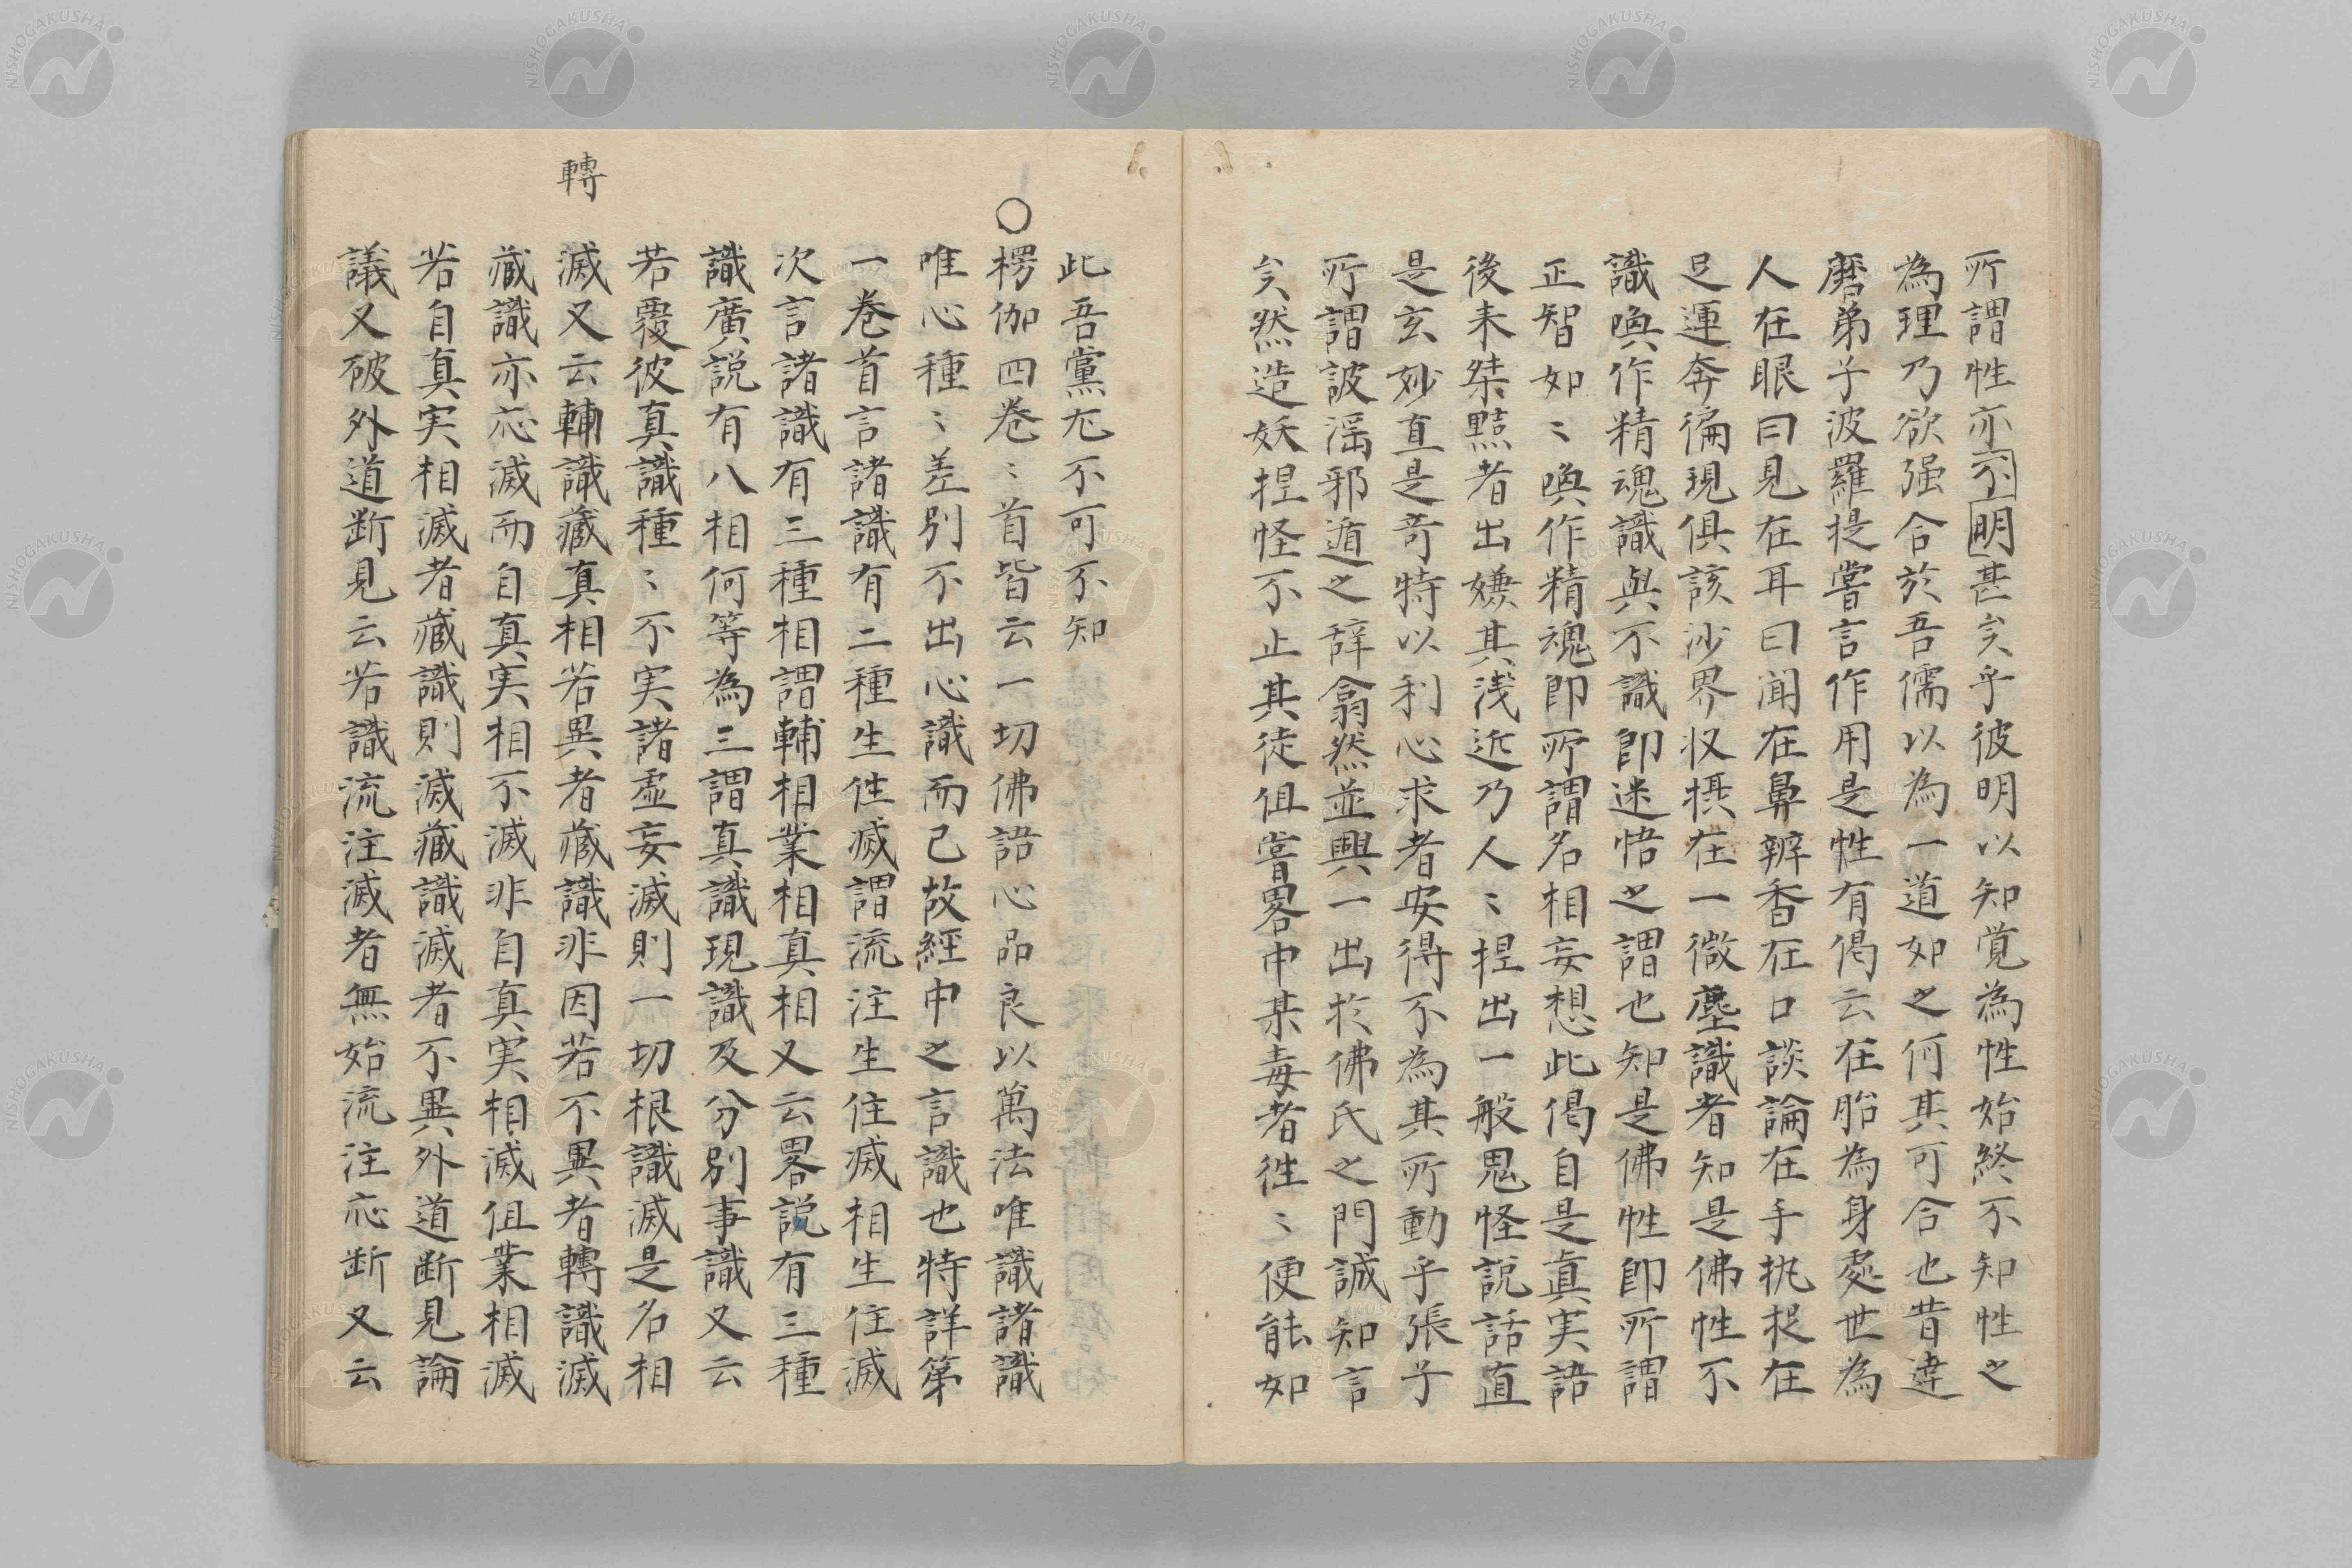 所謂性亦不明甚矣乎彼明以知覚為性始終不知性之
為理乃欲强合於吾儒以為一道如之何其可合也昔達
磨弟子波羅提嘗言作用是性有偈云在胎為身處世為
人在眼曰見在耳曰闻在鼻辨香在口談論在手执捉在
足運奔徧現俱該沙界収摂在一微塵識者知是佛性不
識喚作精魂識與不識即迷悟之謂也知是佛性即所謂
正智如〻喚作精魂即所謂名相妄想此偈自是真実語
後来桀黠者出嫌其浅近乃人〻捏出一般鬼怪説話直
是玄妙直是奇特以利心求者安得不為其所動乎張子
所謂詖滛邪遁之辞翕然並興一出於佛氏之門誠知言
矣然造妖捏怪不止其徒但嘗畧中某毒者徃〻便能如
此吾黨尤不可不知
○楞伽四巻〻首皆云一切佛語心品良以萬法唯識諸識
唯心種〻差別不出心識而已故經中之言識也特詳第
一巻首言諸識有二種生住滅謂流注生住滅相生住滅
次言諸識有三種相謂輔相業相真相又云畧説有三種
識廣説有八相何等為三謂真識現識及分別事識又云
若覆彼真識種〻不実諸虛妄滅則一切根識滅是名相
滅又云輔識藏真相若異者藏識非因若不異者轉識滅
轉
藏識亦応滅而自真実相不滅非自真実相滅但業相滅
若自真実相滅者藏識則滅藏識滅者不異外道断見論
議又破外道断見云若識流注滅者無始流注応断又云
NISHOGAKUSHA